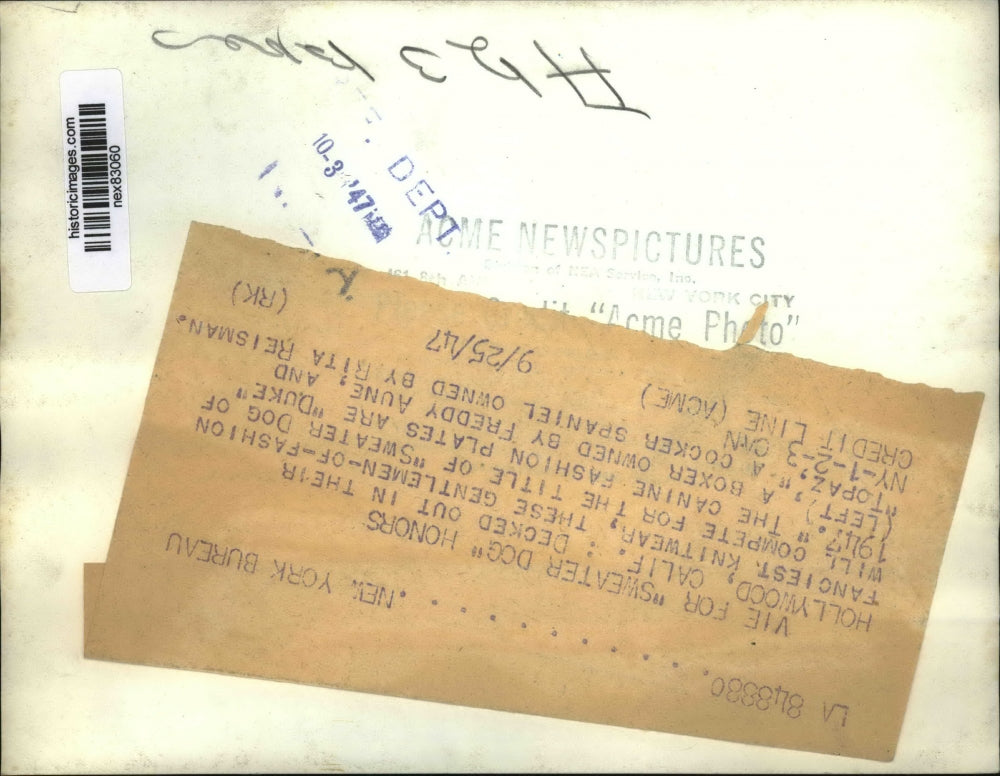 historicimages.com
nex83060
DEPT.
10-3 '47
ACME NEWSPICTURES
Division of NEA Service, Inc.
461 8th
NEW YORK CITY
"Acme Photo"
LA
. . . . . . . . . . NEW YORK BUREAU
VIE FOR "SWEATER DOG" HONORS
HOLLYWOOD, CALIF.: DECKED OUT IN THEIR
FANCIEST KNITWEAR, THESE GENTLEMEN-OF-FASHION
WILL COMPETE FOR THE TITLE OF "SWEATER DOG OF
1947." THE CANINE FASHION PLATES ARE "DUKE"
(LEFT), A BOXER OWNED BY FREDDY AUNE; AND
"TOPAZ," A COCKER SPANIEL OWNED BY RITA REISMAN.
NY-1-2-3
CREDIT LINE (ACME) 9/25/47 (RK)